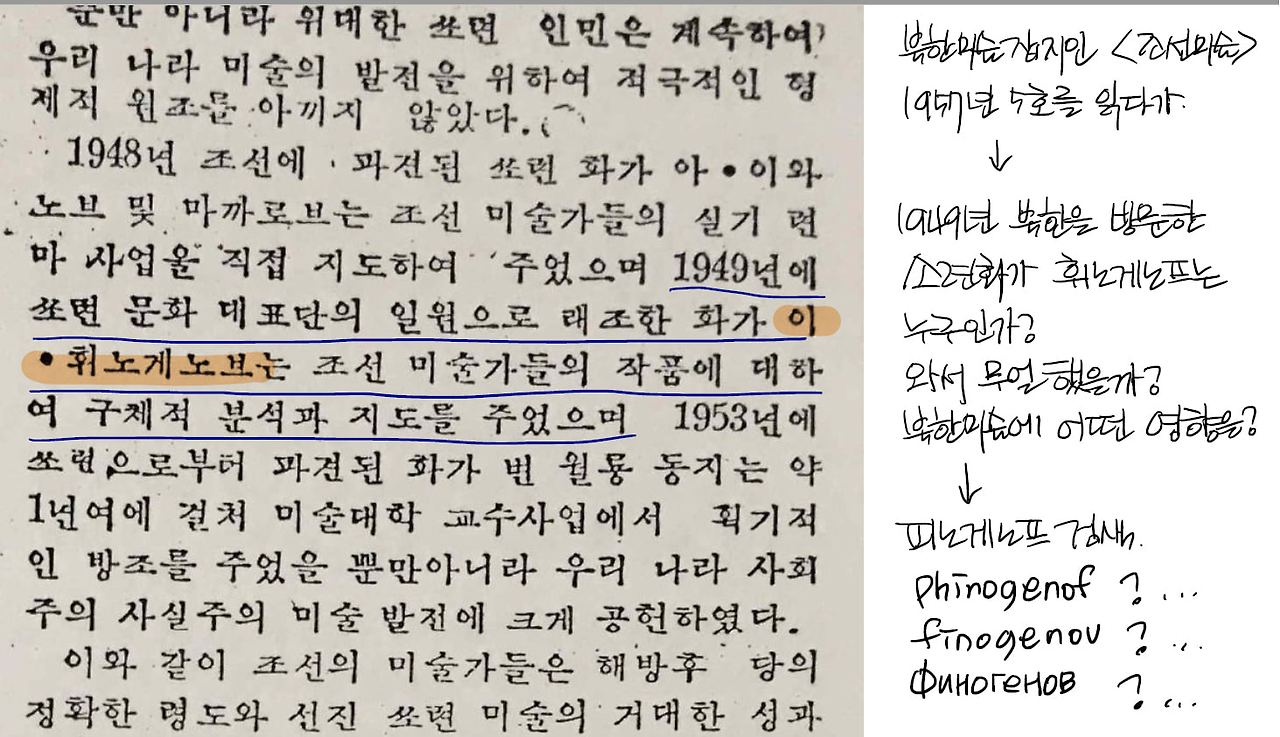 뿐만 아니라 위대한 쏘련 인민은 계속하여
우리 나라 미술의 발전을 위하여 적극적인 형
제적 원조를 아끼지 않았다.
1948년 조선에 파견된 쏘련 화가 아•이와
노브 및 마까로브는 조선 미술가들의 실기 련
마 사업을 직접 지도하여 주었으며 1949년에
쏘련 문화 대표단의 일원으로 래조한 화가 이
•휘노게노브는 조선 미술가들의 작품에 대하
여 구체적 분석과 지도를 주었으며 1953년에
쏘련으로부터 파견된 화가 변 월룡 동지는 약
1년여에 걸쳐 미술대학 교수사업에서 획기적
인 방조를 주었을 뿐만아니라 우리 나라 사회
주의 사실주의 미술 발전에 크게 공헌하였다.
이와 같이 조선의 미술가들은 해방후 당의
정확한 령도와 선진 쏘련 미술의 거대한 성과
북한미술잡지인 <조선미술>
1957년 5호를 읽다가.
↓
1949년 북한을 방문한
소련화가 휘노게노프는
누구인가?
와서 무얼 했을까?
북한미술에 어떤 영향을?
↓
피노게노프 검색.
phinogenof ? ...
finogenov ? ...
Финогенов ? ...